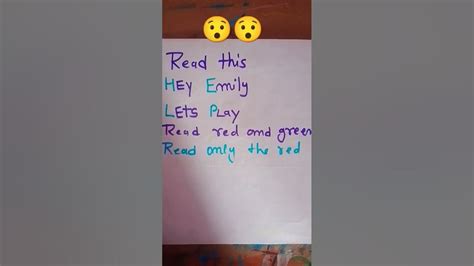 Read this
HEy Emily
LETS PLay
Read red and green
Read only the red